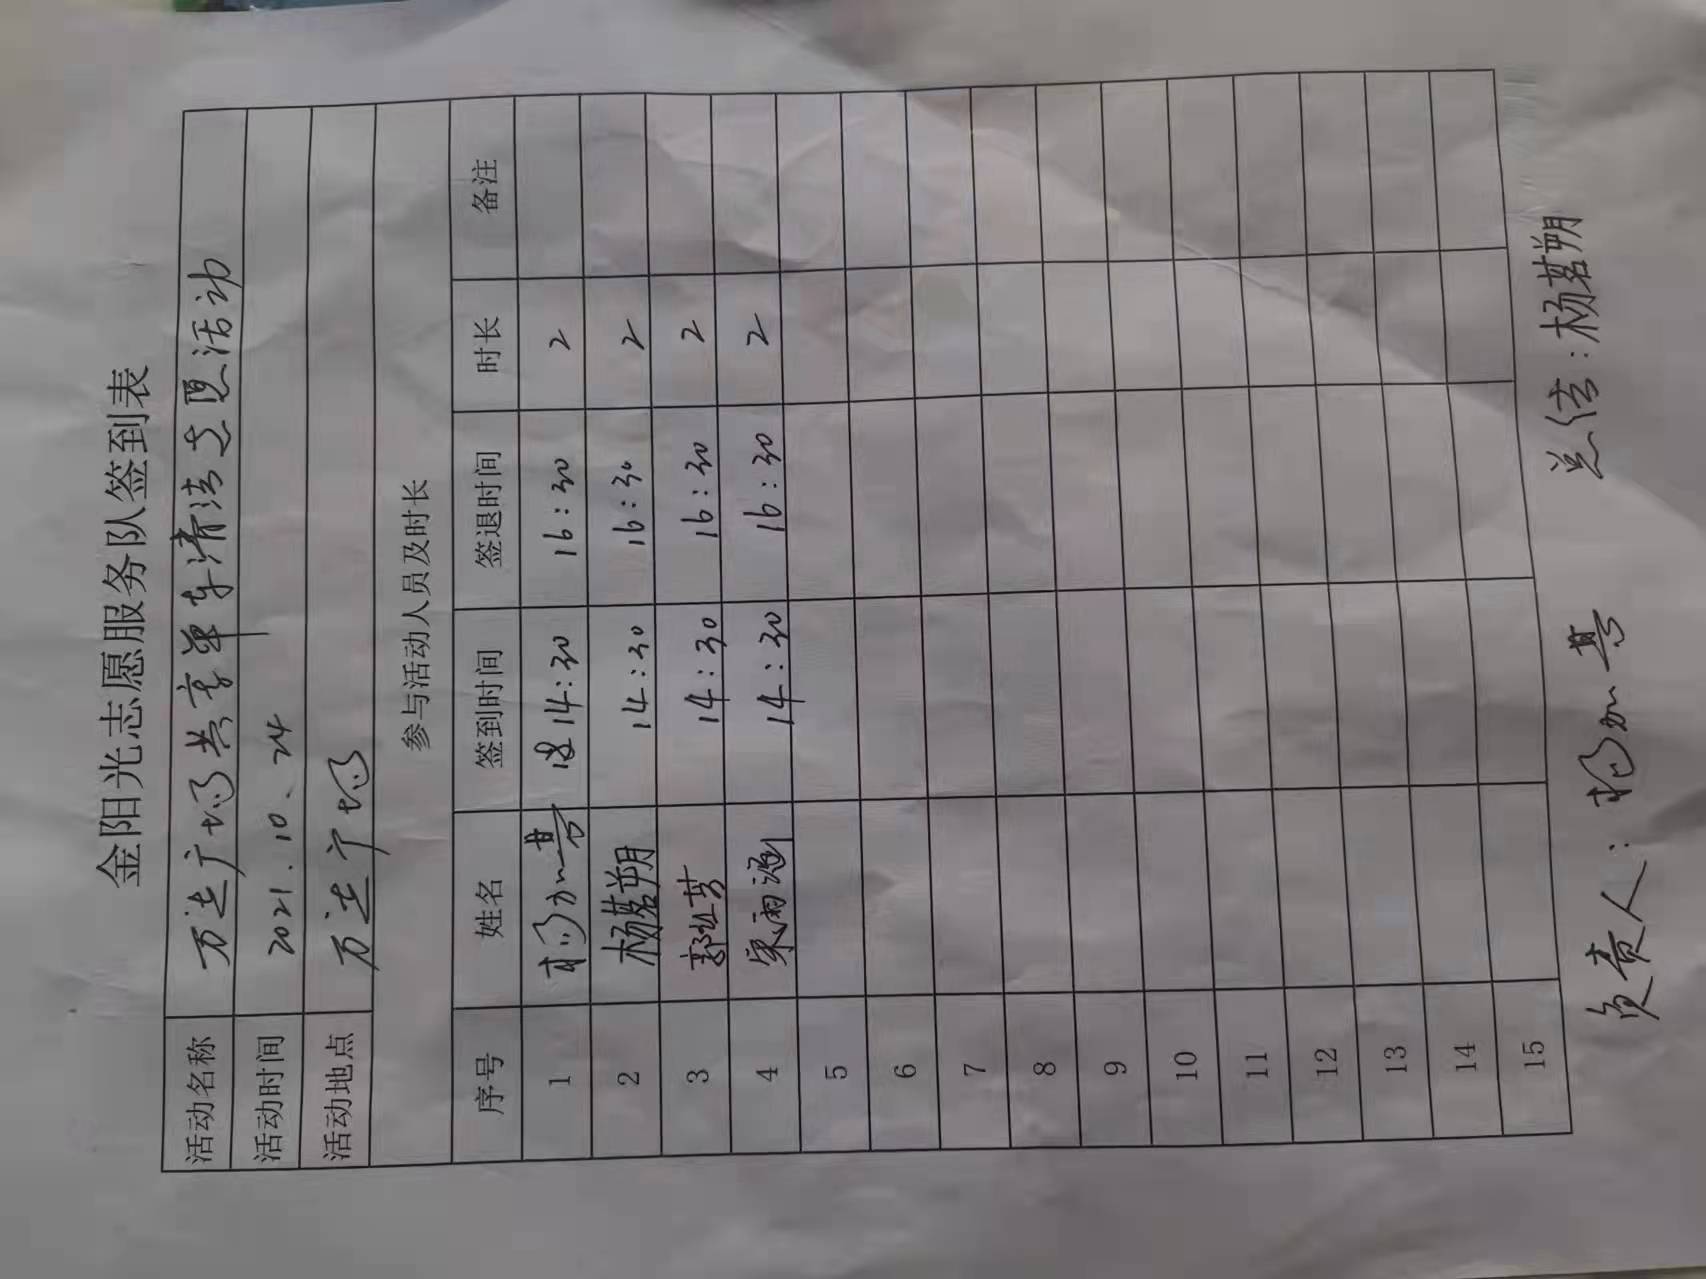 金阳光志愿服务队签到表
活动名称 万达广场共享单车清洁志愿活动
活动时间 2021.10.24
活动地点 万达广场
参与活动人员及时长
序号 姓名 签到时间 签退时间 时长 备注
1 杨加一基 14:30 16:30 2
2 杨茗朔 14:30 16:30 2
3 郭芷芳 14:30 16:30 2
4 宋雨涵 14:30 16:30 2
5
6
7
8
9
10
11
12
13
14
15
负责人：杨加一基 总结：杨茗朔